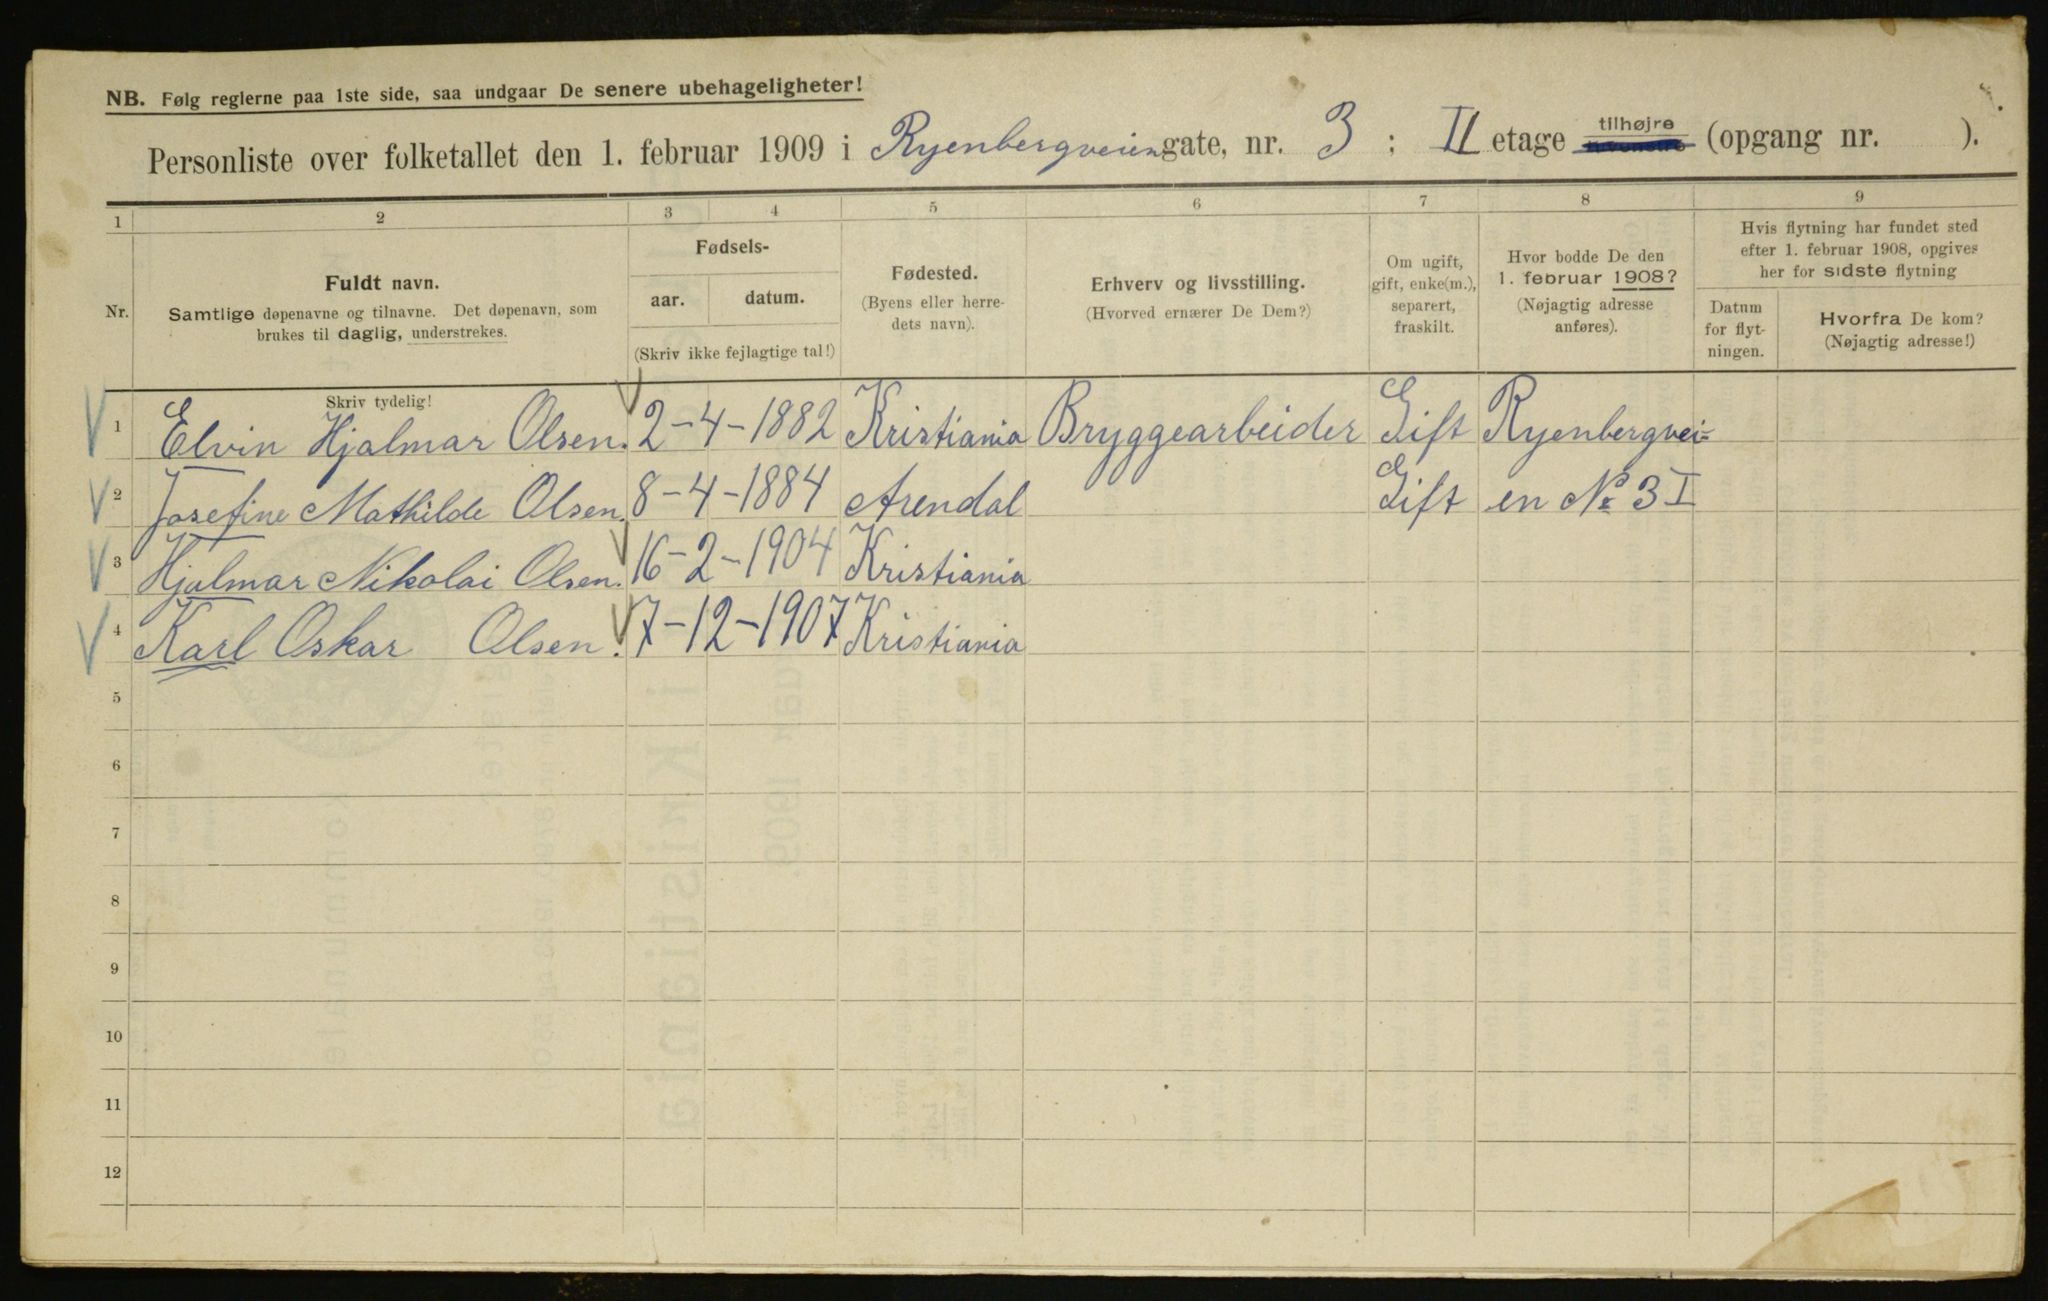 NB. Følg reglerne paa 1ste side, saa undgaar De senere ubehageligheter!
Personliste over folketallet den 1. februar 1909 i Ryenbergveien gate, nr. 3 ; II etage tilhøjre (opgang nr. ).
1 2 3 4 5 6 7 8 9
Nr.
Fuldt navn.
Samtlige døpenavne og tilnavne. Det døpenavn, som
brukes til daglig, understrekes.
Skriv tydelig!
Fødsels-
aar. datum.
(Skriv ikke fejlagtige tal!)
Fødested.
(Byens eller herre-
dets navn).
Erhverv og livsstilling.
(Hvorved ernærer De Dem?)
Om ugift,
gift, enke(m.),
separert,
fraskilt.
Hvor bodde De den
1. februar 1908?
(Nøjagtig adresse
anføres).
Hvis flytning har fundet sted
efter 1. februar 1908, opgives
her for sidste flytning
Datum
for flyt-
ningen.
Hvorfra De kom?
(Nøjagtig adresse!)
1 Elvin Hjalmar Olsen. 2-4-1882 Kristiania Bryggearbeider Gift Ryenbergvei=
2 Josefine Mathilde Olsen. 8-4-1884 Arendal Gift en No 3 I
3 Hjalmar Nikolai Olsen. 16-2-1904 Kristiania
4 Karl Oskar Olsen. 7-12-1907 Kristiania
5
6
7
8
9
10
11
12